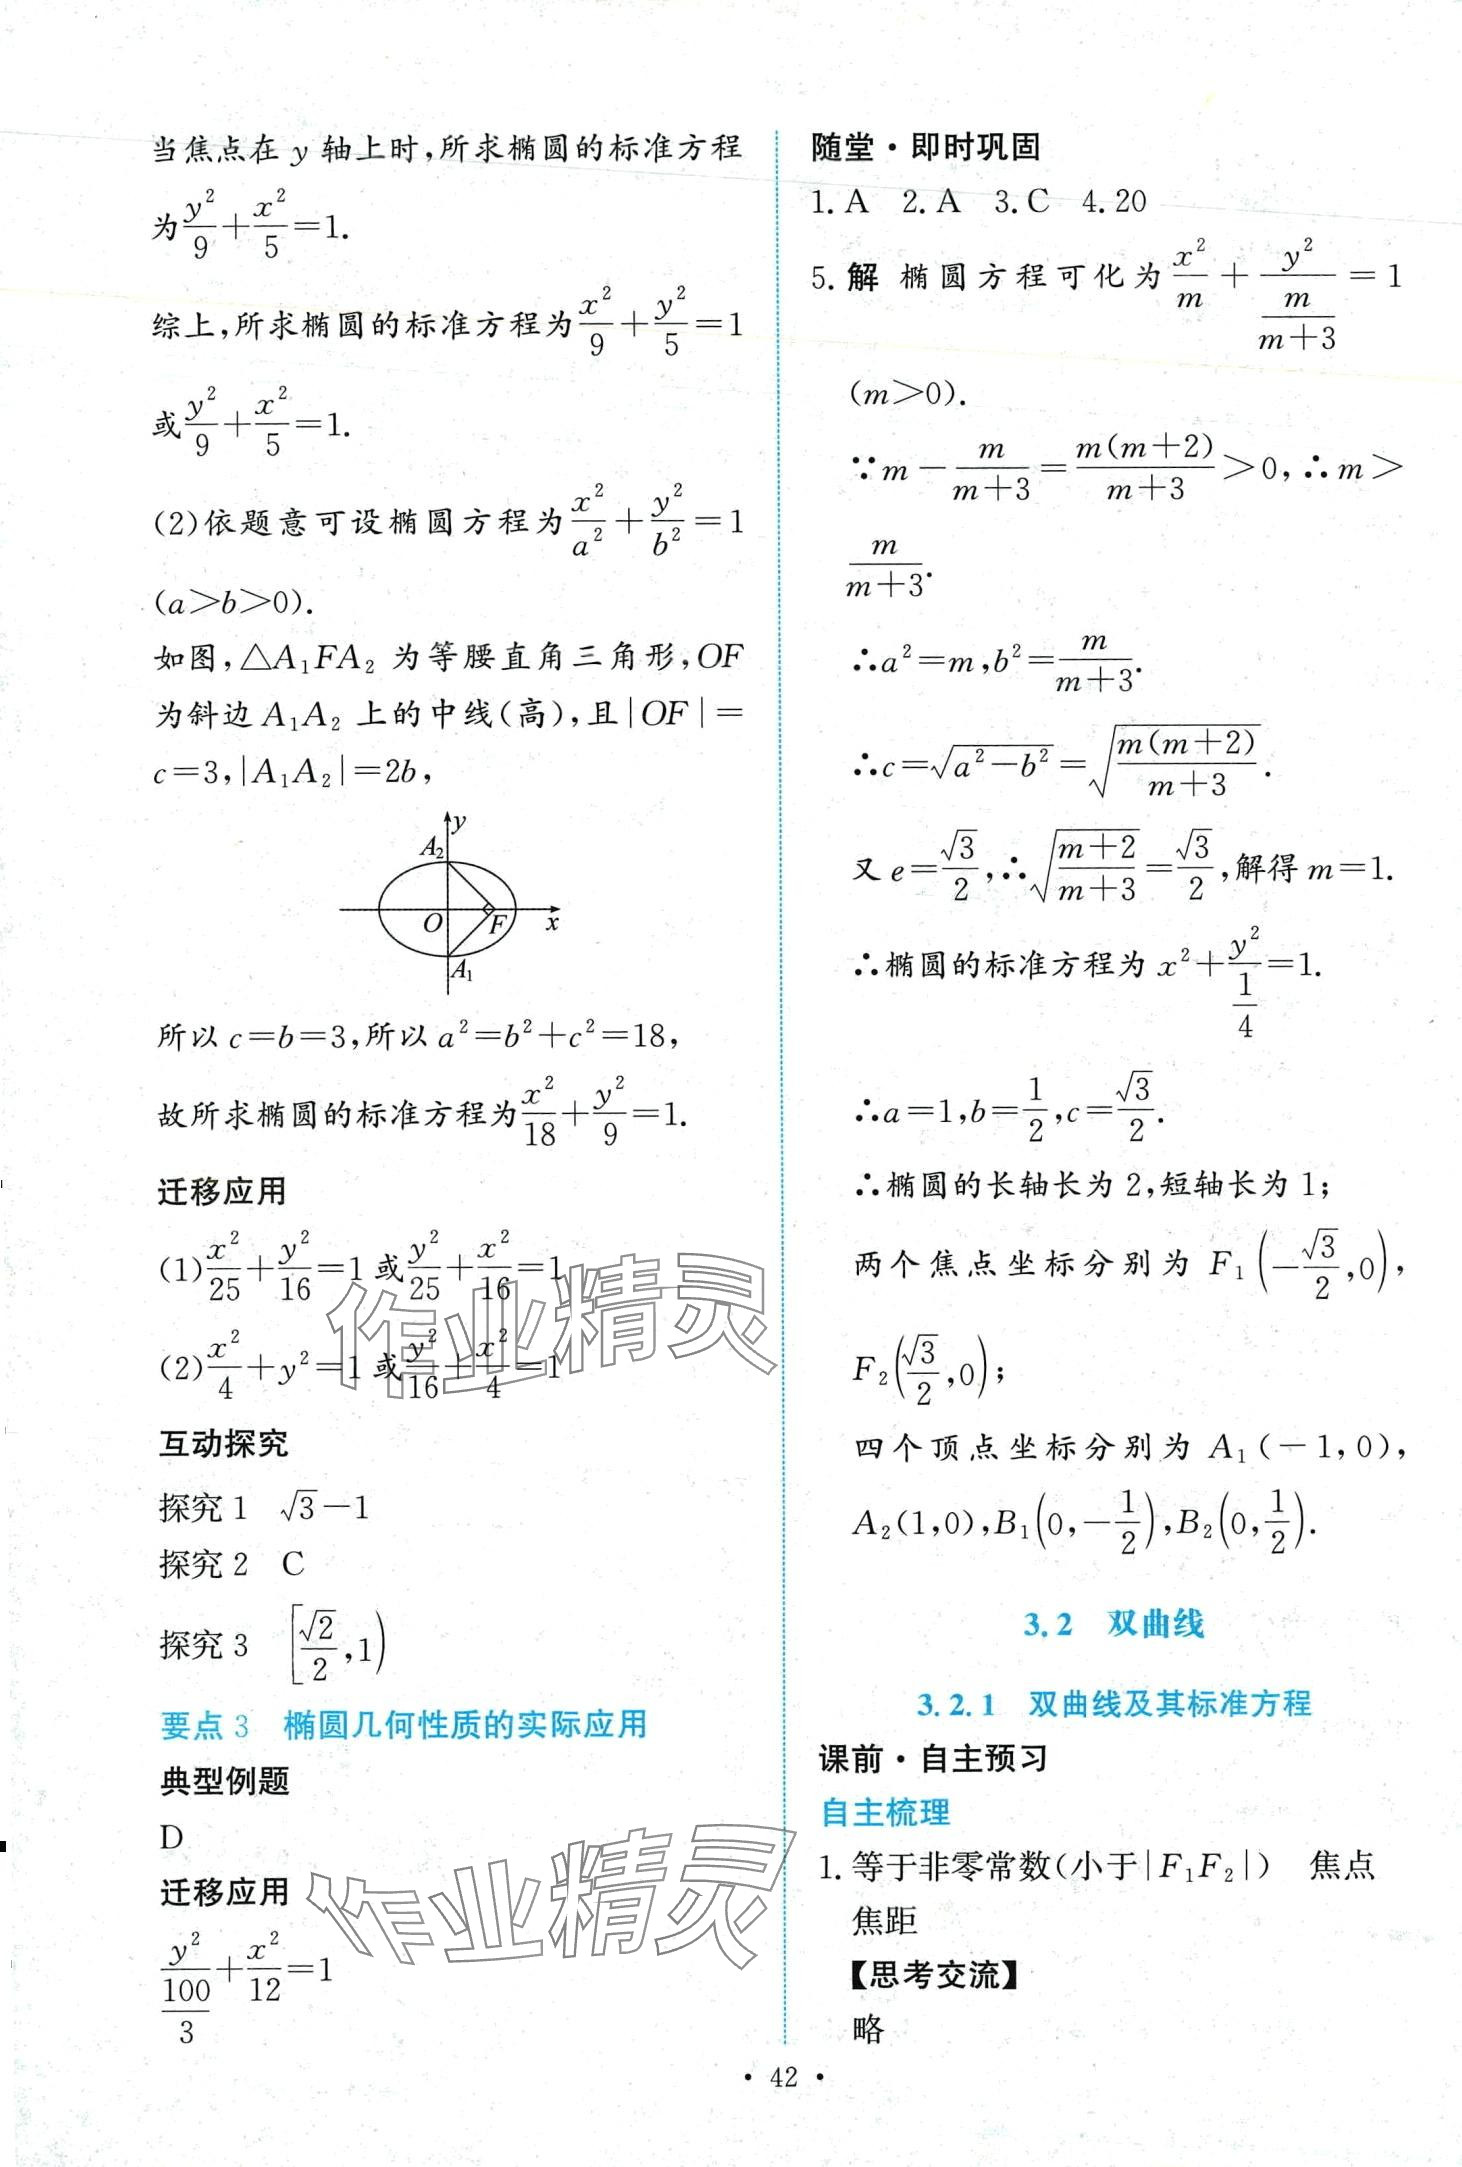 当焦点在 y 轴上时,所求椭圆的标准方程
为y²/9+x²/5=1.
综上,所求椭圆的标准方程为x²/9+y²/5=1
或y²/9+x²/5=1.
(2)依题意可设椭圆方程为x²/a²+y²/b²=1
(a>b>0).
如图,△A₁FA₂ 为等腰直角三角形,OF
为斜边 A₁A₂ 上的中线(高),且|OF|=
c=3,|A₁A₂|=2b,
y
A₂
O
F
x
A₁
所以 c=b=3,所以 a²=b²+c²=18,
故所求椭圆的标准方程为x²/18+y²/9=1.
迁移应用
(1)x²/25+y²/16=1或y²/25+x²/16=1
(2)x²/4+y²=1或y²/16+x²/4=1
互动探究
探究1 √3-1
探究2 C
探究3 [√2/2,1)
要点3 椭圆几何性质的实际应用
典型例题
D
迁移应用
y²/(100/3)+x²/12=1
随堂·即时巩固
1.A 2.A 3.C 4.20
5.解 椭圆方程可化为x²/m+y²/(m/(m+3))=1
(m>0).
∵m-m/(m+3)=m(m+2)/(m+3)>0,∴m>
m/(m+3).
∴a²=m,b²=m/(m+3).
∴c=√(a²-b²)=√(m(m+2)/(m+3)).
又e=√3/2,∴√((m+2)/(m+3))=√3/2,解得m=1.
∴椭圆的标准方程为 x²+y²/(1/4)=1.
∴a=1,b=1/2,c=√3/2.
∴椭圆的长轴长为2,短轴长为1;
两个焦点坐标分别为 F₁(-√3/2,0),
F₂(√3/2,0);
四个顶点坐标分别为 A₁(-1,0),
A₂(1,0),B₁(0,-1/2),B₂(0,1/2).
3.2 双曲线
3.2.1 双曲线及其标准方程
课前·自主预习
自主梳理
1.等于非零常数(小于|F₁F₂|) 焦点
焦距
【思考交流】
略
·42·
作业精灵
作业精灵